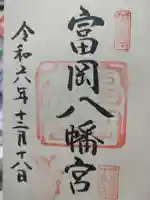 富岡八幡宮
令和六年十二月十八日